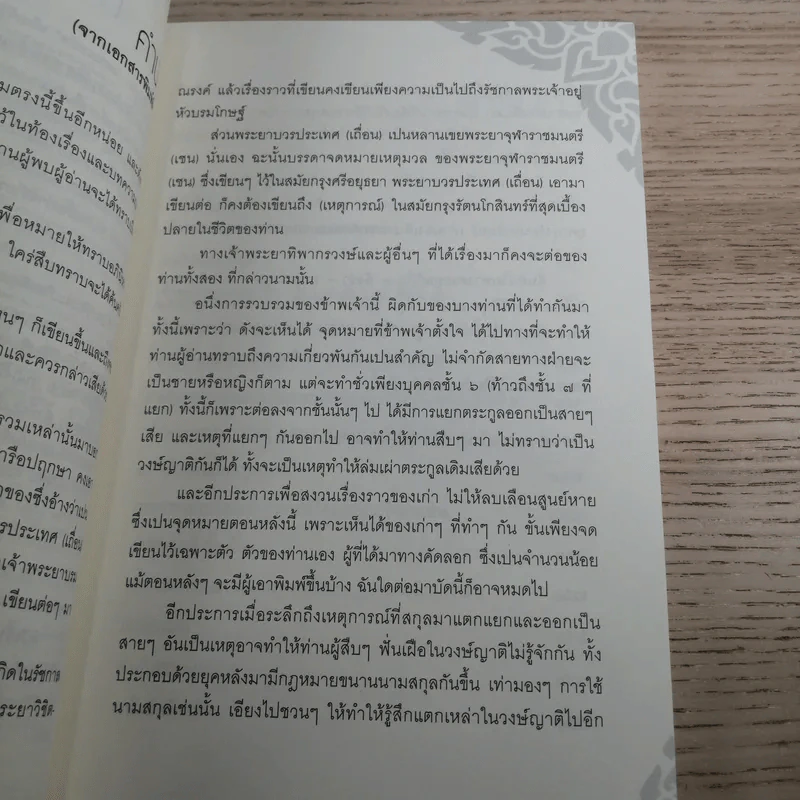 (จากเอกสารพิมพ์
มตรงนี้ขึ้นอีกหน่อย และ
ว้ในท้องเรื่องและบทความ
านผู้พบผู้อ่านจะได้ทราบ
พื่อหมายให้ทราบ
ใคร่สืบทราบจะได้
นๆ ก็เขียนขึ้นและ
าและควรกล่าวเสีย
รวมเหล่านั้นมา
ารือปฤกษา
ของซึ่งอ้างว่า
วรประเทศ (เถื่อน)
เจ้าพระยา
เขียนต่อๆ มา
กิดในรัชกาล
ระยาวิชิต
ณรงค์ แล้วเรื่องราวที่เขียนคงเขียนเพียงความเป็นไปถึงรัชกาลพระเจ้าอยู่
หัวบรมโกษฐ์
ส่วนพระยาบวรประเทศ (เถื่อน) เปนหลานเขยพระยาจุฬาราชมนตรี
(เชน) นั่นเอง ฉะนั้นบรรดาจดหมายเหตุมวล ของพระยาจุฬาราชมนตรี
(เชน) ซึ่งเขียนๆ ไว้ในสมัยกรุงศรีอยุธยา พระยาบวรประเทศ (เถื่อน) เอามา
เขียนต่อ ก็คงต้องเขียนถึง (เหตุการณ์) ในสมัยกรุงรัตนโกสินทร์ที่สุดเบื้อง
ปลายในชีวิตของท่าน
ทางเจ้าพระยาทิพากรวงษ์และผู้อื่นๆ ที่ได้เรื่องมาก็คงจะต่อของ
ท่านทั้งสอง ที่กล่าวนามนั้น
อนึ่งการรวบรวมของข้าพเจ้านี้ ผิดกับของบางท่านที่ได้ทำกันมา
ทั้งนี้เพราะว่า ดังจะเห็นได้ จุดหมายที่ข้าพเจ้าตั้งใจ ได้ไปทางที่จะทำให้
ท่านผู้อ่านทราบถึงความเกี่ยวพันกันเปนสำคัญ ไม่จำกัดสายทางฝ่ายจะ
เป็นชายหรือหญิงก็ตาม แต่จะทำชั่วเพียงบุคคลชั้น ๖ (ท้าวถึงชั้น ๗ ที่
แยก) ทั้งนี้ก็เพราะต่อลงจากชั้นนั้นๆ ไป ได้มีการแยกตระกูลออกเป็นสายๆ
เสีย และเหตุที่แยกๆ กันออกไป อาจทำให้ท่านสืบๆ มา ไม่ทราบว่าเป็น
วงษ์ญาติกันก็ได้ ทั้งจะเป็นเหตุทำให้ล่มเผ่าตระกูลเดิมเสียด้วย
และอีกประการเพื่อสงวนเรื่องราวของเก่า ไม่ให้ลบเลือนสูนย์หาย
ซึ่งเปนจุดหมายตอนหลังนี้ เพราะเห็นได้ของเก่าๆ ที่ทำๆ กัน ขั้นเพียงจด
เขียนไว้เฉพาะตัว ตัวของท่านเอง ผู้ที่ได้มาทางคัดลอก ซึ่งเปนจำนวนน้อย
แม้ตอนหลังๆ จะมีผู้เอาพิมพ์ขึ้นบ้าง ฉันใดต่อมาบัดนี้ก็อาจหมดไป
อีกประการเมื่อระลึกถึงเหตุการณ์ที่สกุลมาแตกแยกและออกเป็น
สายๆ อันเป็นเหตุอาจทำให้ท่านผู้สืบๆ ฟั่นเฝือในวงษ์ญาติไม่รู้จักกัน ทั้ง
ประกอบด้วยยุคหลังมามีกฎหมายขนานนามสกุลกันขึ้น เท่ามองๆ การใช้
นามสกุลเช่นนั้น เอียงไปชวนๆ ให้ทำให้รู้สึกแตกเหล่าในวงษ์ญาติไปอีก